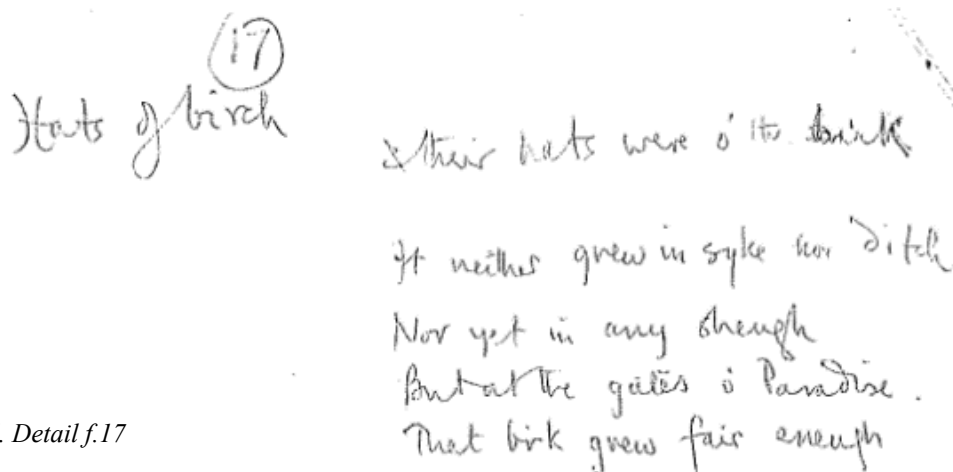 17
Hats of birch
& their hats were o' the birk
It neither grew in syke nor ditch
Nor yet in any sheugh
But at the gates o' Paradise.
That birk grew fair eneugh
. Detail f.17